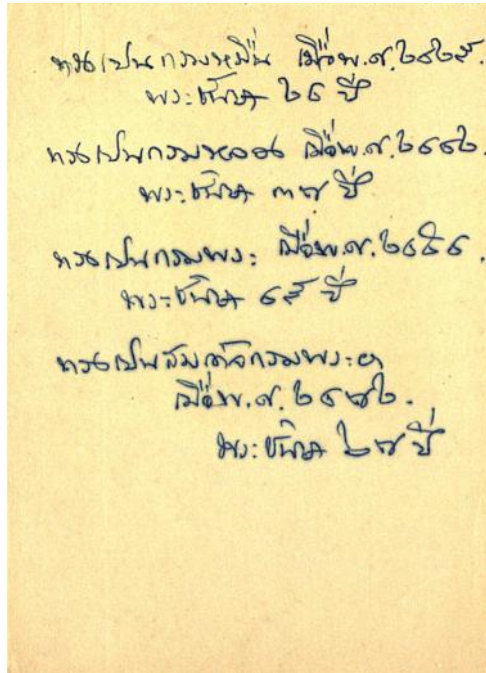 ทรงเป็นกรมหมื่น เมื่อพ.ศ.๒๔๒๙.
พระชันษา ๒๔ ปี
ทรงเป็นกรมหลวง เมื่อพ.ศ.๒๔๔๒.
พระชันษา ๓๗ ปี
ทรงเป็นกรมพระ เมื่อพ.ศ.๒๔๕๔.
พระชันษา ๔๙ ปี
ทรงเป็นสมเด็จกรมพระยา
เมื่อพ.ศ.๒๔๗๒.
พระชันษา ๖๗ ปี